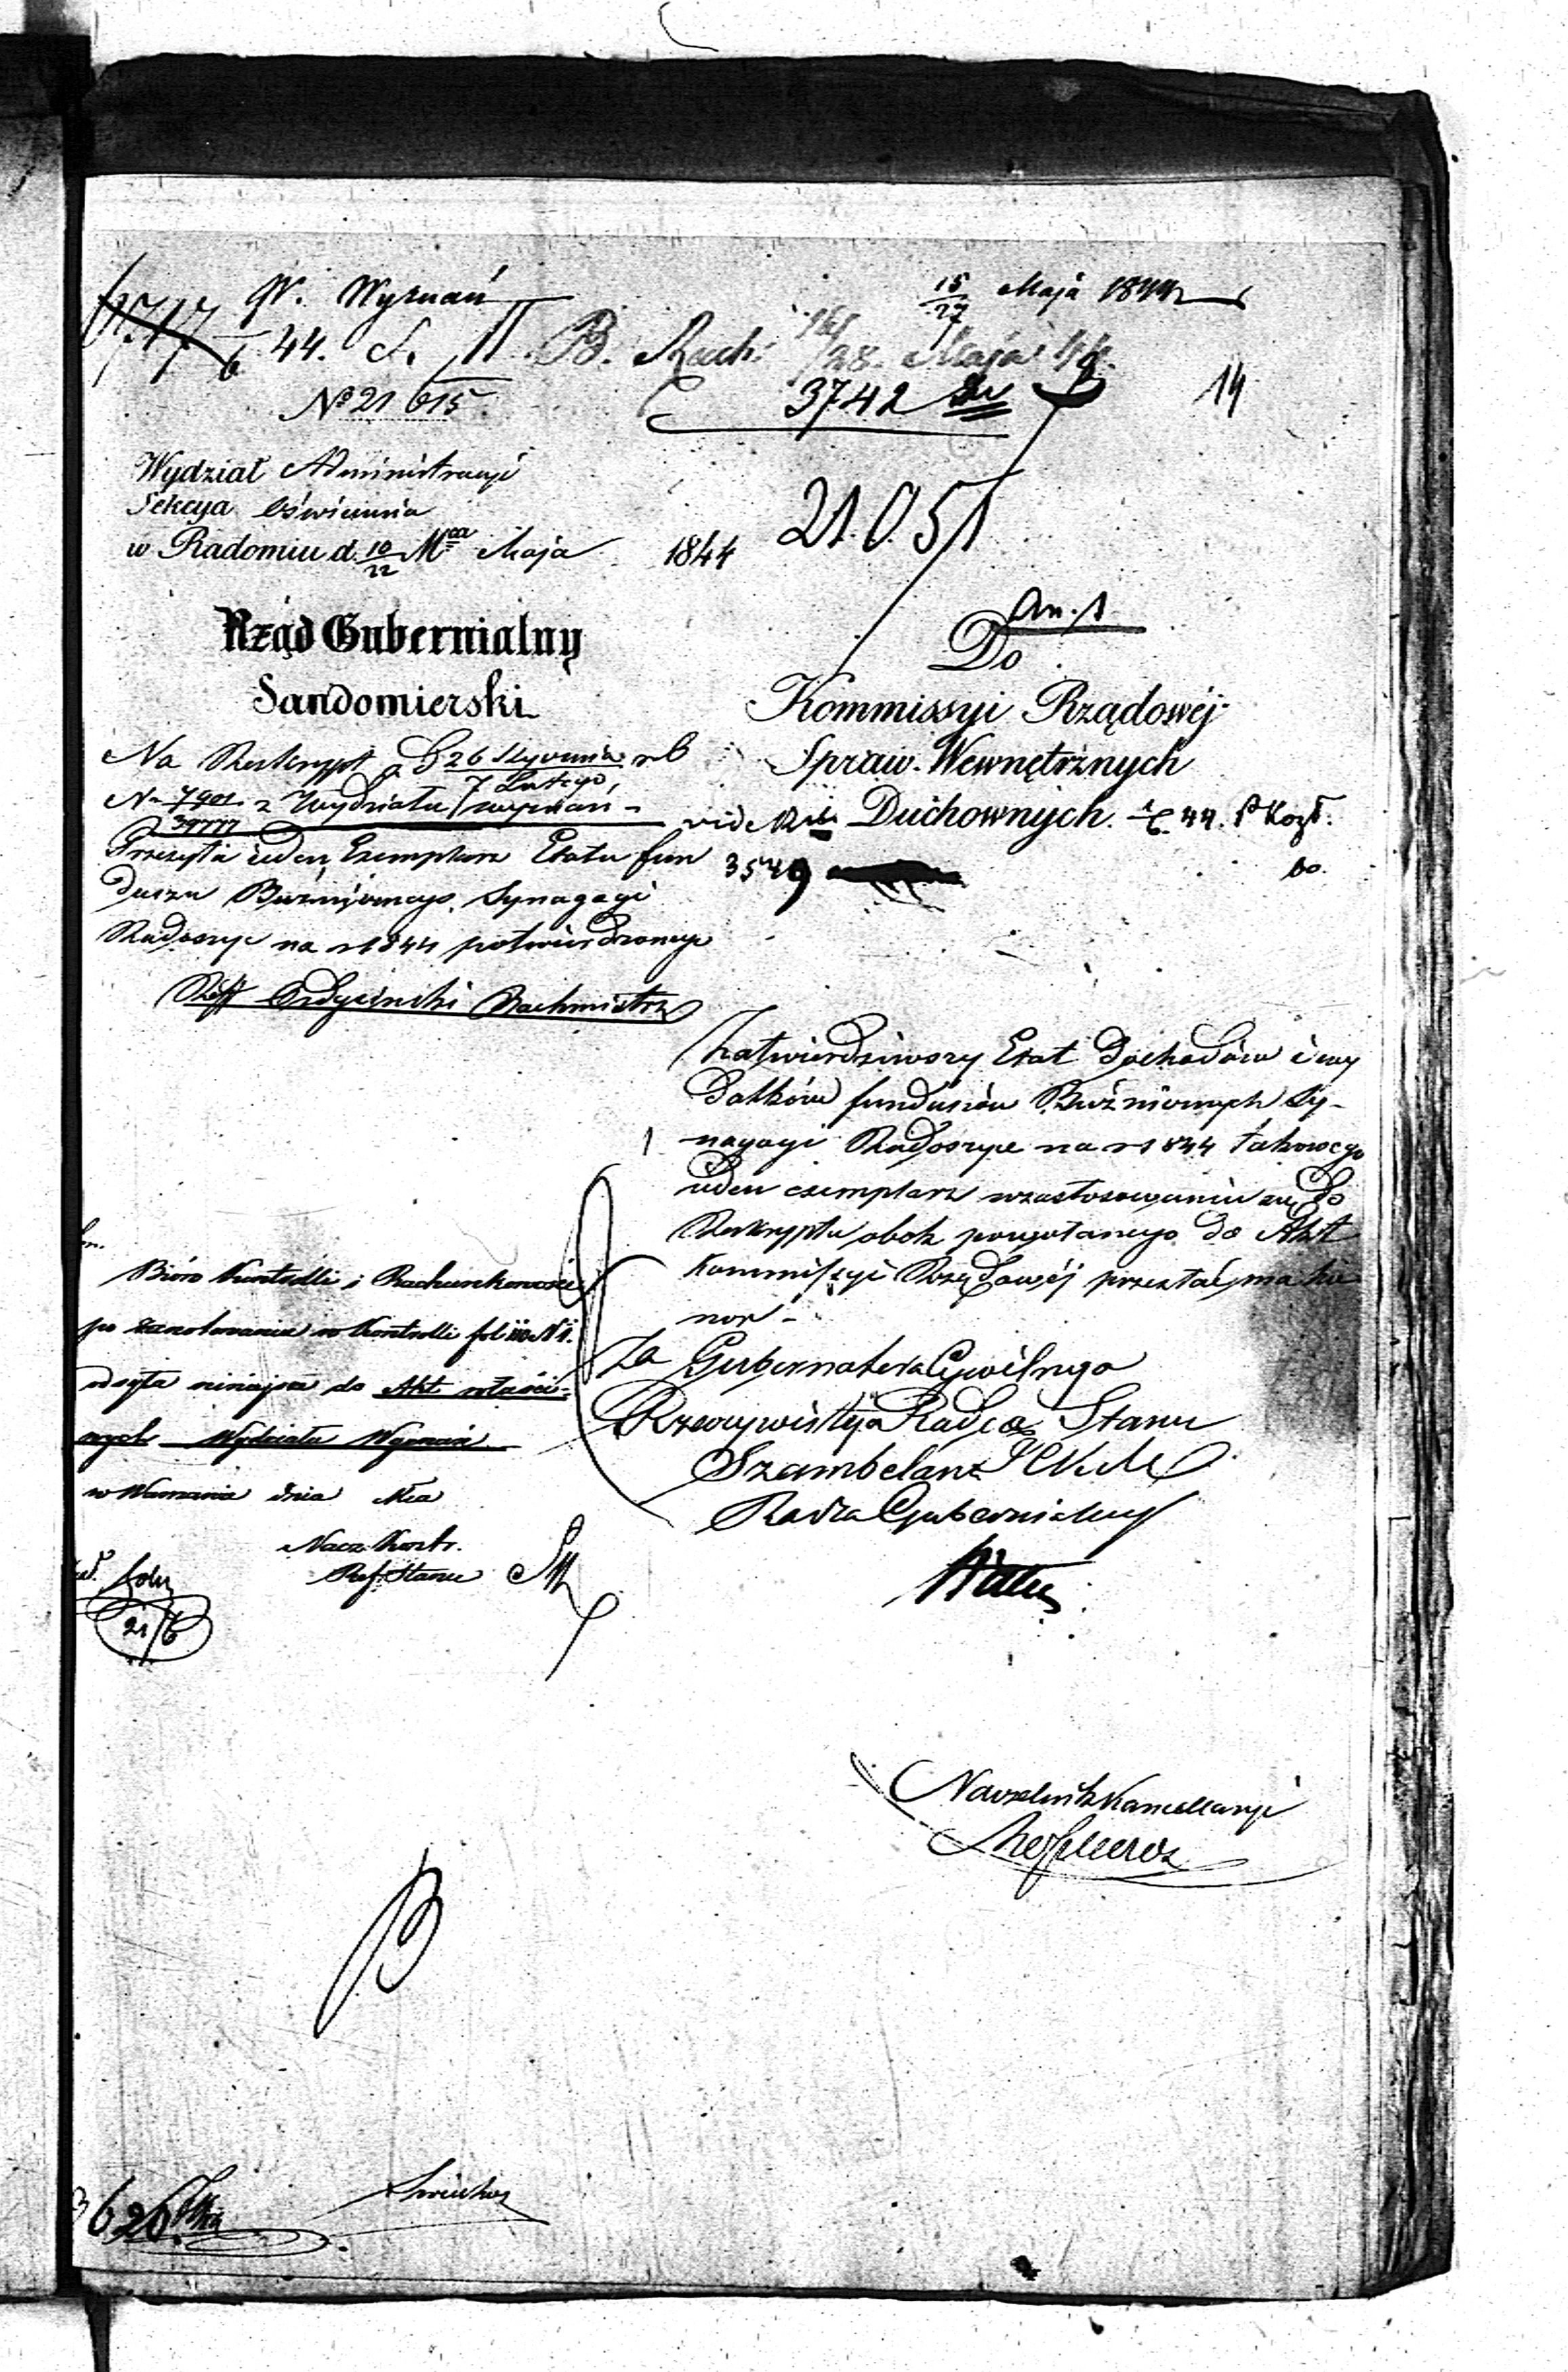 W. Wyznań
15/27 Maja 1844
6717
6 44. S. II B. Rach: 16/28 Maja 44.
No 21615.
3742
14
Wydział Administracyi
Sekcya Oświecenia
w Radomiu d. 10/22 Mca Maja 1844
21.051
An. 1
Rząd Gubernialny
Sandomierski
Do
Kommissyi Rządowéj
Spraw Wewnętrznych
Duchownych.
Na Reskrypt z D 26 Stycznia / 7 Lutego rb
N 7901/39777 z Wydziału wyznań -
Przesyła ieden Exemplarz Etatu fun
duszu Bużnicznego Synagogi
Radoszyc na r 1844 potwierdzonego
3549
Reff Rachmistrz
Zatwierdziwszy Etat dochodów i wy
datków funduszów Bużnicznych Sy-
nagogi Radoszyce na r 1844 takowego
ieden exemplarz w zastosowaniu się do
Reskryptu obok powołanego do Akt
Kommissyi Rządowéj przesłać ma ho
nor -
Za Gubernatora Cywilnego
Rzeczywistego Radca Stanu
Szambelan
Radca Gubernialny
Biuro Kontrolli i Rachunkowości
po zanotowaniu w Kontrolli fol N
odsyła niniejsze do Akt właści-
wych Wydziału Wyznań
w Warszawie dnia Mca
Nacz. Kontr.
Ref. Stanu
21/6
Naczelnik Kancellaryi